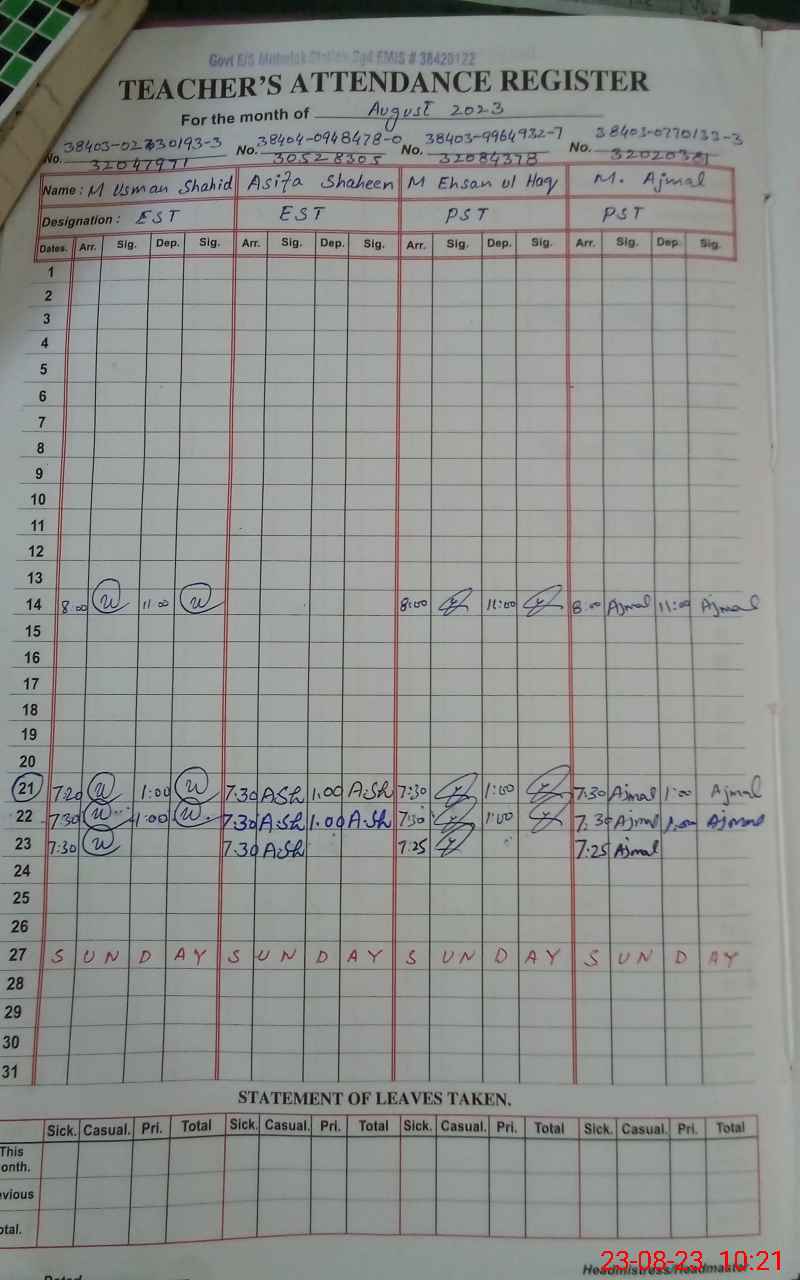 Govt E/S Sgd EMIS # 38420122
TEACHER'S ATTENDANCE REGISTER
For the month of August 2023
No. 38403-0273 0193-3 No. 38404-0948478-0 No. 38403-9964932-7 No. 38403-0770133-3
32047971 30528305 32084378 3202038
Name: M Usman Shahid Asifa Shaheen M Ehsan ul Haq M. Ajmal
Designation: EST EST PST PST
Dates. Arr. Sig. Dep. Sig. Arr. Sig. Dep. Sig. Arr. Sig. Dep. Sig. Arr. Sig. Dep. Sig.
1
2
3
4
5
6
7
8
9
10
11
12
13
14 8:00 U 11:00 U 8:00 11:00 8:00 Ajmal 11:00 Ajmal
15
16
17
18
19
20
21 7:20 U 1:00 U 7.30 ASh 1.00 ASh 7:30 1:00 7.30 Ajmal 1:00 Ajmal
22 7:30 U 1:00 U 7.30 ASh 1.00 ASh 7:30 1:00 7:30 Ajmal 1:00 Ajmal
23 7:30 U 7.30 ASh 7:25 7:25 Ajmal
24
25
26
27 S U N D A Y S U N D A Y S U N D A Y S U N D A Y
28
29
30
31
STATEMENT OF LEAVES TAKEN.
Sick. Casual. Pri. Total Sick. Casual. Pri. Total Sick. Casual. Pri. Total Sick. Casual. Pri. Total
This
onth.
evious
otal.
Headmistress/Headmaster
23-08-23 10:21